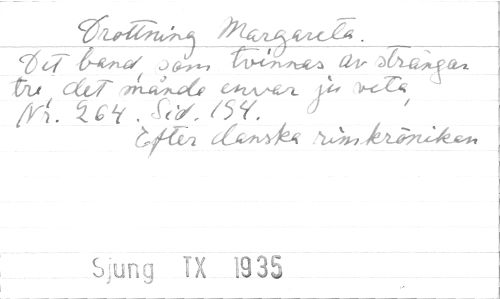 Drottning Margareta.
Det band, som tvinnas av strängar
tre, det månde envar ju veta,
Nr. 264. Sid. 194.
Efter danska rimkrönikan
Sjung TX 1935